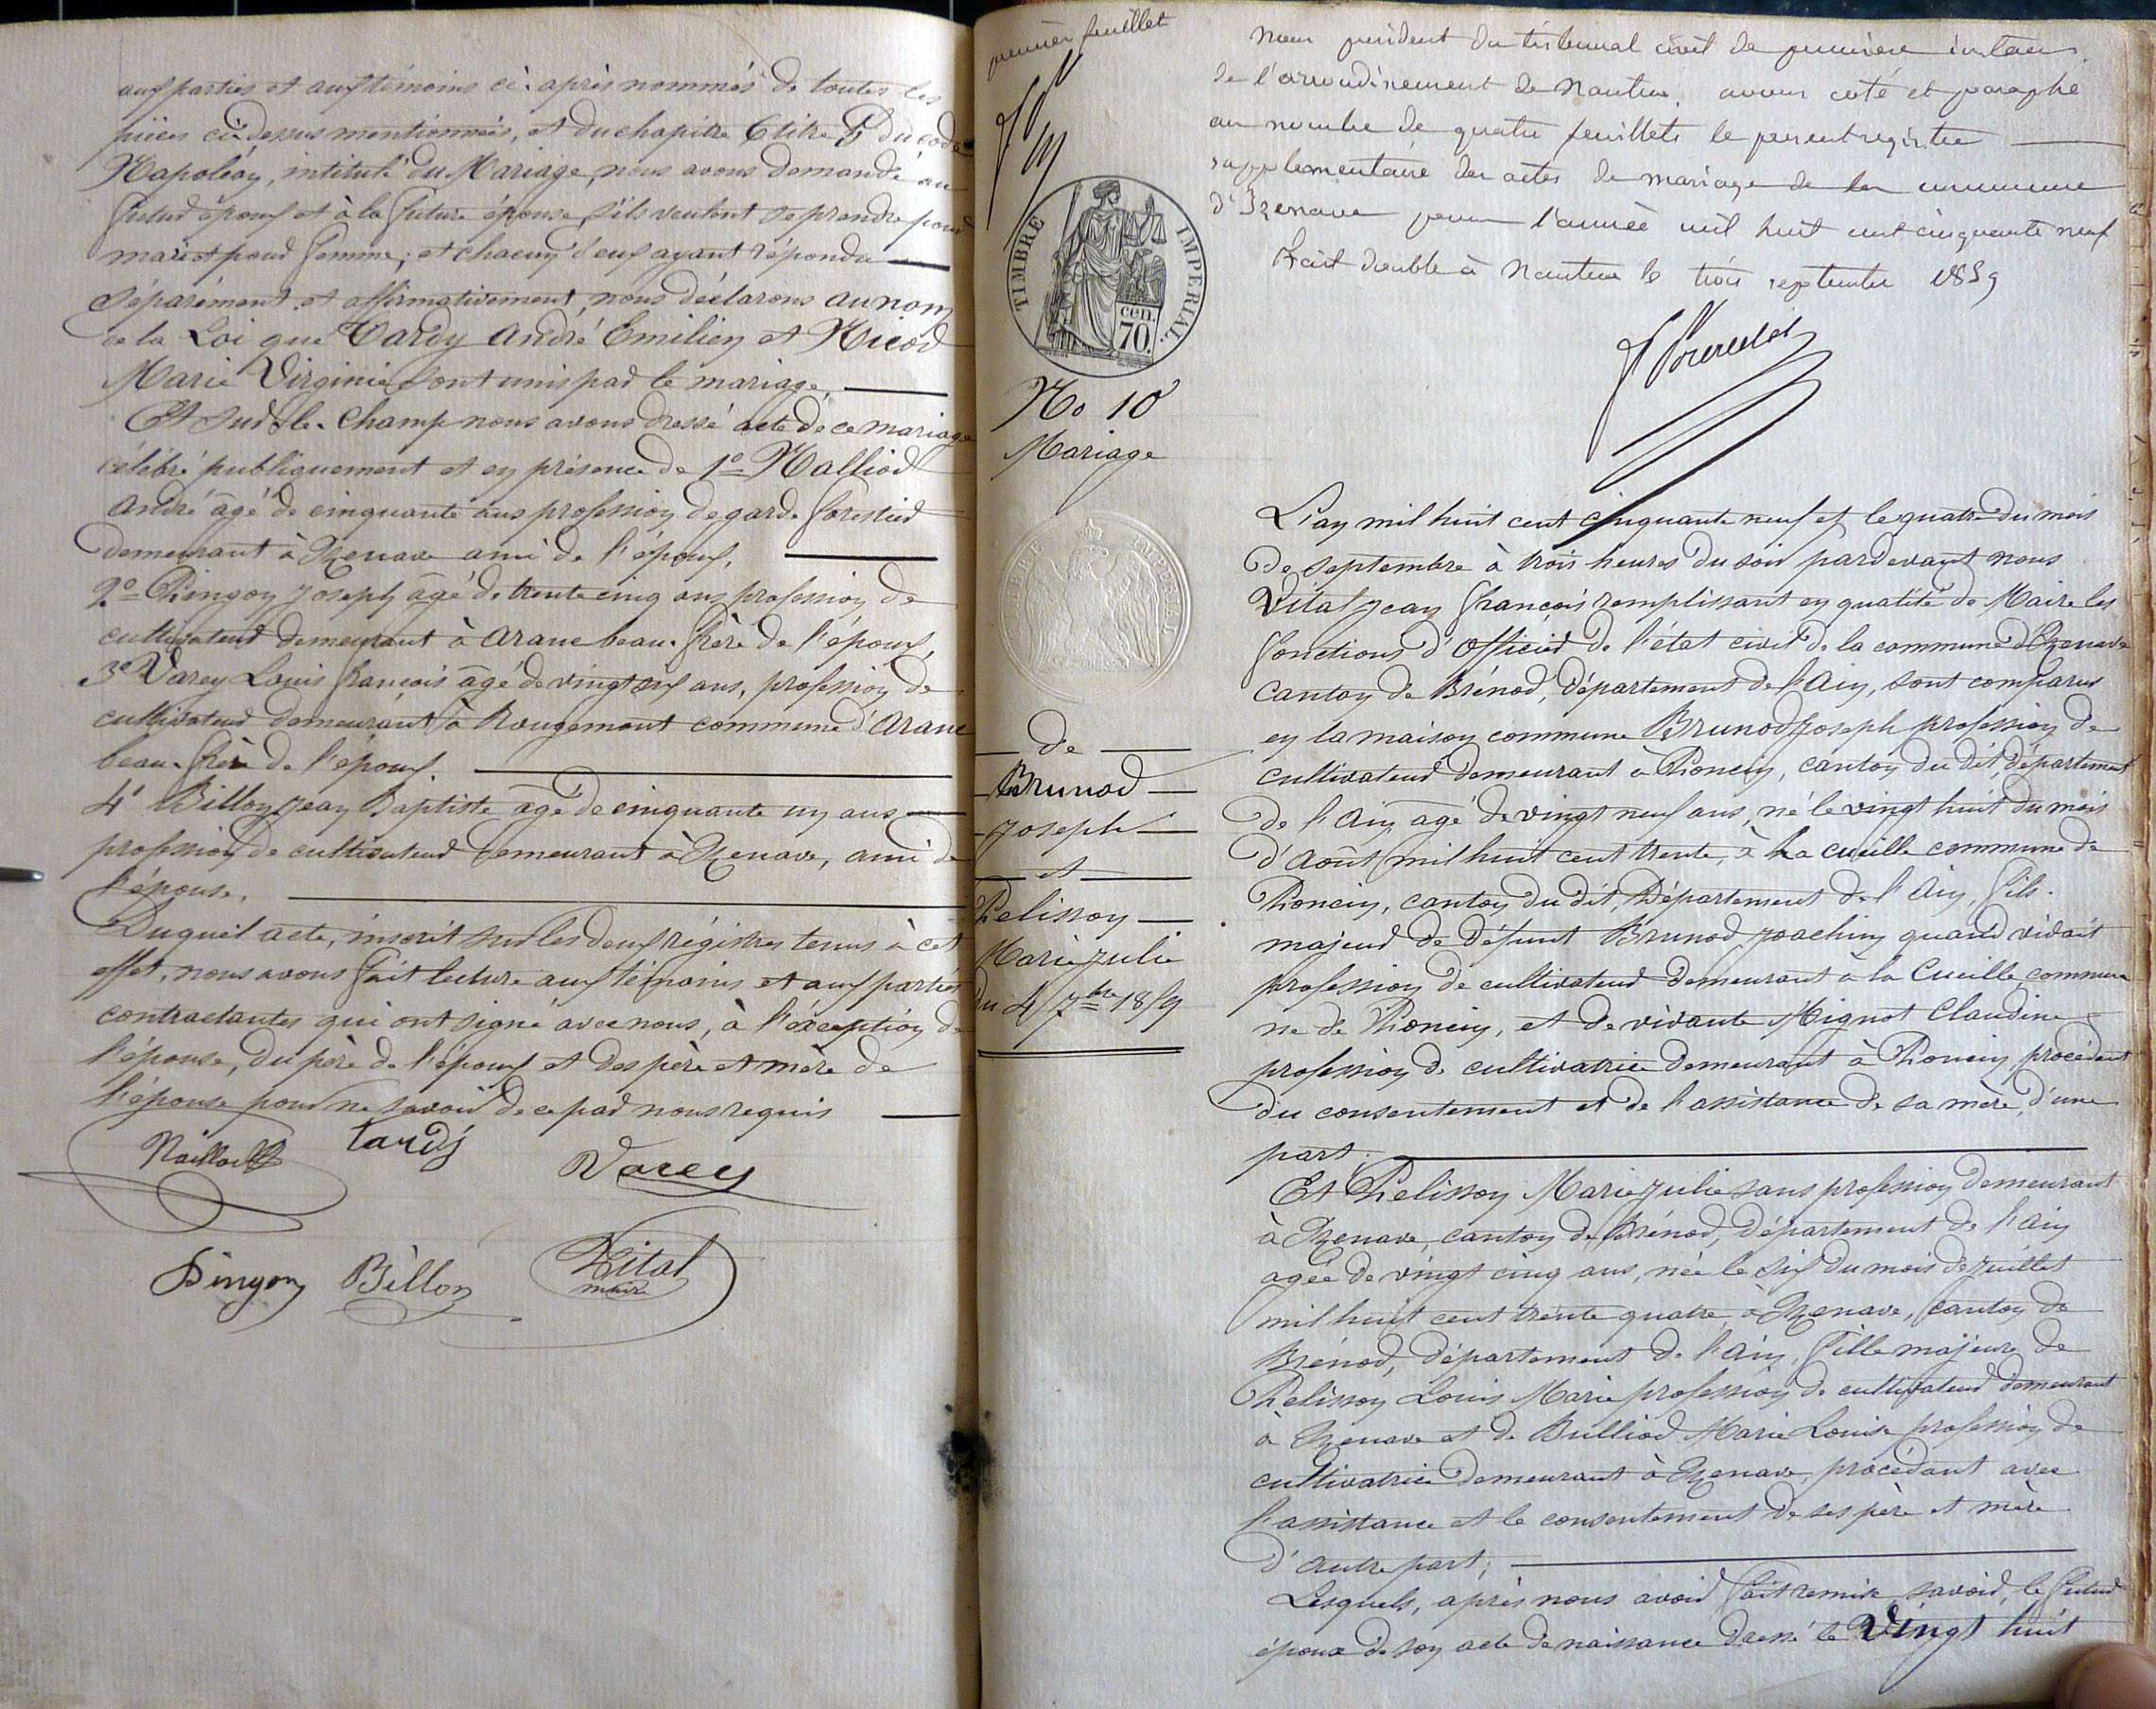 aux parties et aux témoins ci-après nommés de toutes les
pièces ci-dessus mentionnées, et du chapitre 6 titre 5 du code
Napoléon, intitulé du Mariage, nous avons demandé au
futur époux et à la future épouse, s'ils veulent se prendre pour
mari et pour femme; et chacun d'eux ayant répondu
séparément et affirmativement, nous déclarons au nom
de la Loi que Tardy André Emilien et Nicod
Marie Virginie sont unis par le mariage.
Et sur le champ nous avons dressé acte de ce mariage
célébré publiquement et en présence de 1º Nalliod
André âgé de cinquante ans profession de garde forestier
demeurant à Izenave ami de l'époux,
2º Pingon Joseph âgé de trente cinq ans profession de
cultivateur demeurant à Aranc beau-frère de l'époux,
3º Varey Louis François âgé de vingt ans, profession de
cultivateur demeurant à Rougemont commune d'Aranc
beau-frère de l'époux.
4º Billon Jean Baptiste âgé de cinquante un ans
profession de cultivateur demeurant à Izenave, ami de
l'épouse.
Duquel acte, inscrit sur les deux régistres tenus à cet
effet, nous avons fait lecture aux témoins et aux parties
contractantes qui ont signé avec nous, à l'éxception de
l'épouse, du père de l'époux et des père et mère de
l'épouse pour ne savoir de ce par nous requis
Nalliod tardy Varey
Pingon Billon Vital
maire
premier feuillet
Nous président du tribunal civil de première instance
de l'arrondissement de Nantua, avons coté et paraphé
au nombre de quatre feuillets le présent registre
supplementaire des actes de mariage de la commune
d'Izenave pour l'année mil huit cent cinquante neuf
Fait double à Nantua le trois septembre 1859
TIMBRE IMPERIAL.
cen.
70.
No 10
Mariage
de
Brunod
Joseph
et
Pelisson
Marie Julie
du 4 7bre 1859
L'an mil huit cent cinquante neuf et le quatre du mois
de septembre à trois heures du soir pardevant nous
Vital Jean François remplissant en qualité de Maire les
fonctions d'Officier de l'état civil de la commune d'Izenave
canton de Brénod, département de l'Ain, sont comparus
en la maison commune Brunod Joseph profession de
cultivateur demeurant à Poncin, canton du dit, département
de l'Ain âgé de vingt neuf ans, né le vingt huit du mois
d'Août mil huit cent trente, à La Cueille commune de
Poncin, canton du dit, Département de l'Ain, fils
majeur de défunt Brunod Joachim quand vivait
profession de cultivateur demeurant à la Cueille commu
ne de Poncin, et de vivante Mignot Claudine
profession de cultivatrice demeurant à Poncin, procédant
du consentement et de l'assistance de sa mère, d'une
part.
Et Pelisson Marie Julie sans profession demeurant
à Izenave, canton de Brénod, Département de l'Ain
agée de vingt cinq ans, née le six du mois de Juillet
mil huit cent trente quatre, à Izenave, canton de
Brénod, département de l'Ain, fille majeure de
Pelisson Louis Marie profession de cultivateur demeurant
à Izenave et de Bulliod Marie Louise profession de
cultivatrice demeurant à Izenave, procédant avec
l'assistance et le consentement de ses père et mère
d'autre part;
Lesquels, après nous avoir fait remise savoir, le futur
époux de son acte de naissance dressé le Vingt huit